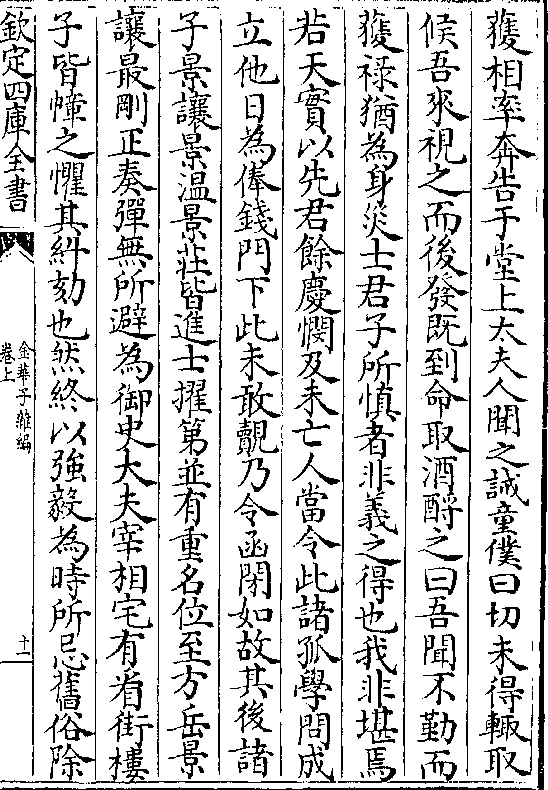 獲相率奔告于堂上太夫人聞之誡童僕曰切未得輙取
候吾來視之而後發既到命取酒酹之曰吾聞不勤而
獲祿猶為身災士君子所慎者非義之得也我非堪焉
若天實以先君餘慶憫及未亡人當令此諸孤學問成
立他日為俸錢門下此未敢覬乃令函閉如故其後諸
子景讓景溫景莊皆進士擢第並有重名位至方岳景
讓最剛正奏彈無所避為御史大夫宰相宅有看街樓
子皆幛之懼其糾劾也然終以強毅為時所忌舊俗除
欽定四庫全書
金華子雜編
卷上
十一